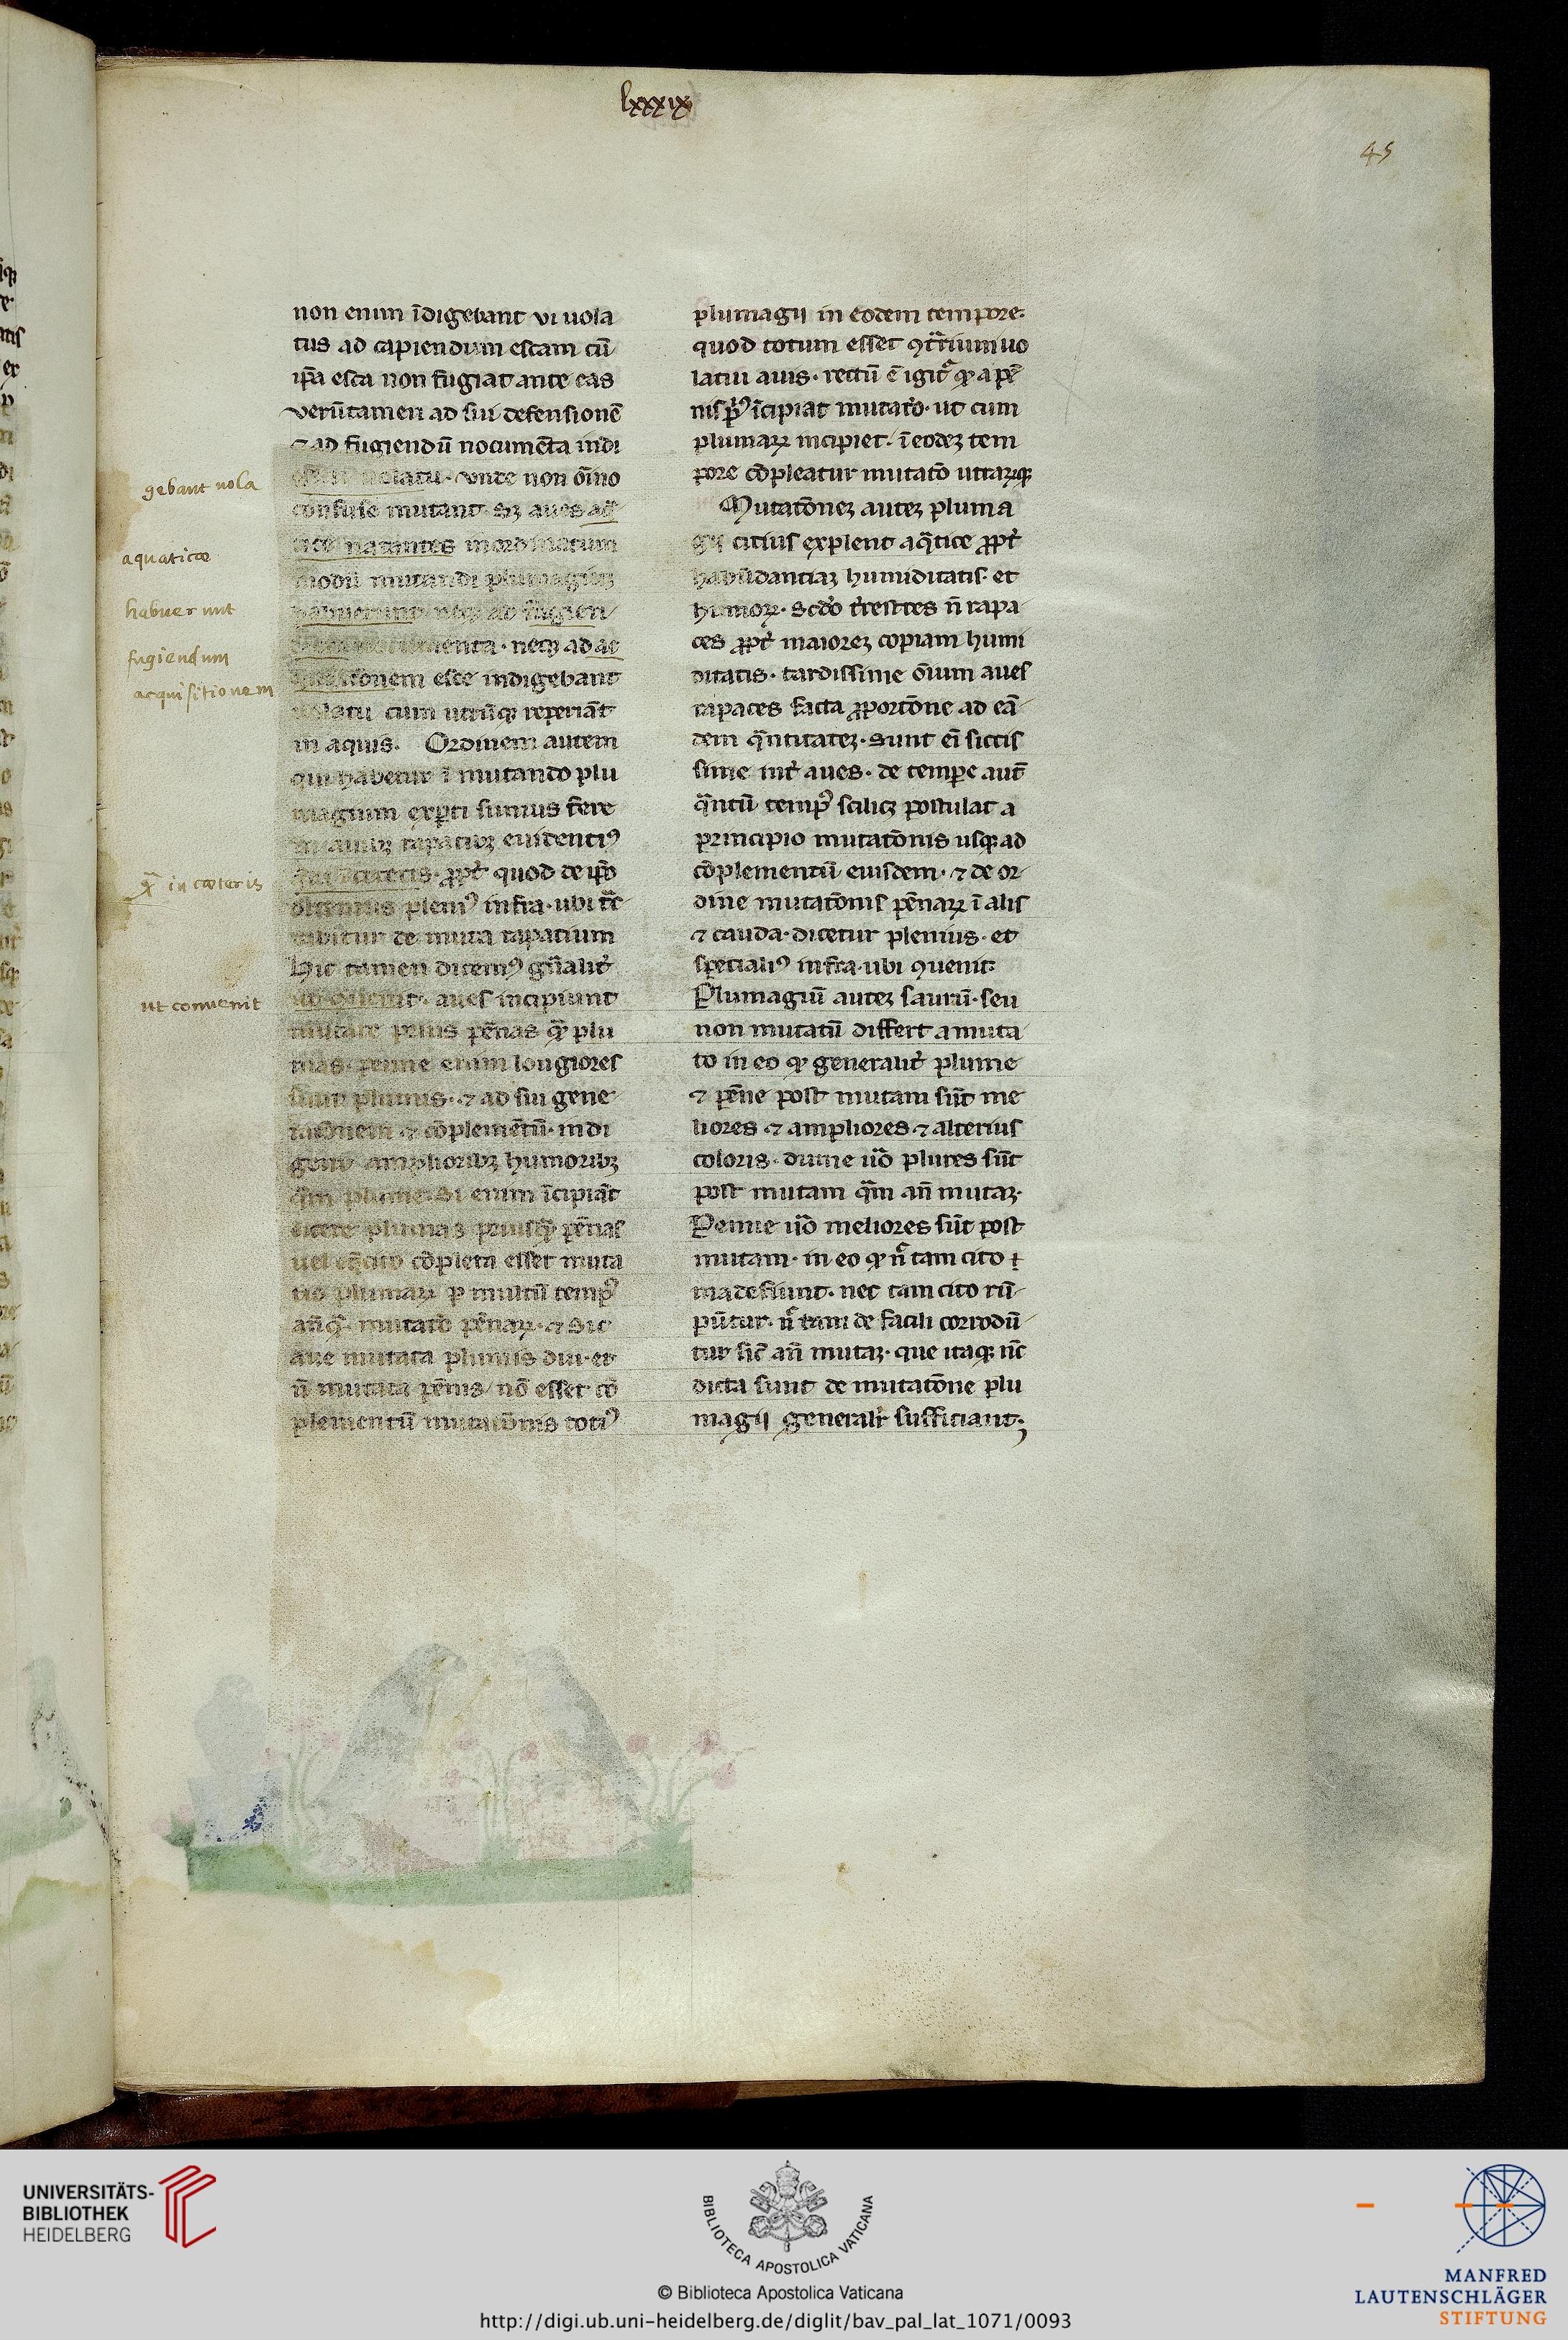 lxxxix
45
non enim īdigebant vi uola
tus ad capiendum escam cū
ip̄a esca non fugiat ante eas
verūtamen ad sui defensionē
⁊ ad fugiendū nocumēta indi
uolatu· vnde non ōīno
confuse mutant· sꝫ aues aq̄
tice natantes inordinatum
modū mutandi plumagiuꝫ
habuerunt neqꝫ ad fugien
menta· neqꝫ ad ac
tōnem esce indigebant
uolatu cum utrūqꝫ reperiāt
in aquis· Ordinem autem
qui habetur ī mutando plu
magium exp̄ti sumus fere
in auibꝫ rapacibꝫ euidentiꝰ
ceteris· ꝓpt̓ quod de ip̄o
dicemus pleniꝰ infra· ubi tc̄
tabitur de muta rapacium
Hic tamen dicemꝰ gn̄alit̓
ut ꝯuenit· aues incipiunt
mutare prius pēnas qꝫ plu
mas· penne enim longiores
sunt plumis· ⁊ ad sui gene
ratōnem ⁊ cōplemētū· indi
gent amplioribꝫ humoribꝫ
qm̄ plume· Si enim īcipiāt
iicere plumas priusqꝫ pēnas
uel cōpleta esset muta
tio plumaꝝ ꝑ multū tempꝰ
an̄q̄ mutatō pēnaꝝ· ⁊ sic
aue mutata plumis diu· et
n̄ mutata pēnis nō esset cō
plementū mutatōnis totiꝰ
gebant uola
aquaticæ
habuerunt
fugiendum
acquisitionem
in cæteris
ut convenit
plumagij in eodem tempore·
quod totum esset ꝯtͬrium uo
latui auis· rectū ē igit̓ ꝙ a pē
nis pͥꝰ īcipiat mutatō· ut cum
plumaꝝ incipiet· ī eodeꝫ tem
pore cōpleatur mutatō utraꝝqꝫ
Mutatōneꝫ auteꝫ pluma
gij citius explent aq̄tice ꝓpt̓
habūdantiaꝫ humiditatis· et
humoꝝ· Scdō t̓restres n̄ rapa
ces ꝓpt̓ maioreꝫ copiam humi
ditatis· tardissime ōīum aues
rapaces facta ꝓportōne ad eā
dem q̄ntitateꝫ· Sunt eī siccis
sime int̓ aues· de tempe aut̄
q̄ntū tempꝰ scilicꝫ postulat a
principio mutatōnis usqꝫ ad
cōplementū eiusdem· ⁊ de or
dine mutatōnis pēnaꝝ ī alis
⁊ cauda· dicetur plenius· et
specialiꝰ infra· ubi ꝯuenit·
Plumagiū auteꝫ saurū· seu
non mutatū differt a muta
to in eo ꝙ generalit̓ plume
⁊ pēne post mutam sūt me
liores ⁊ ampliores ⁊ alterius
coloris· dume uō plures sūt
post mutam qm̄ an̄ mutaꝫ·
Penne uō meliores sūt post
mutam· in eo ꝙ n̄ tam cito
madefiunt· nec tam cito rū
pūtur· n̄ tam de facili corrodū
tur sic̄ an̄ mutaꝫ· que itaqꝫ nc̄
dicta sunt de mutatōne plu
magij general̓r sufficiant·
UNIVERSITÄTS-
BIBLIOTHEK
HEIDELBERG
BIBLIOTECA APOSTOLICA VATICANA
© Biblioteca Apostolica Vaticana
http://digi.ub.uni-heidelberg.de/diglit/bav_pal_lat_1071/0093
MANFRED
LAUTENSCHLÄGER
STIFTUNG